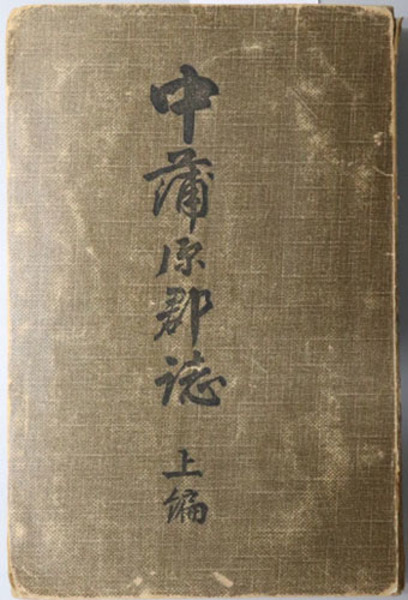 中蒲原郡誌
上編